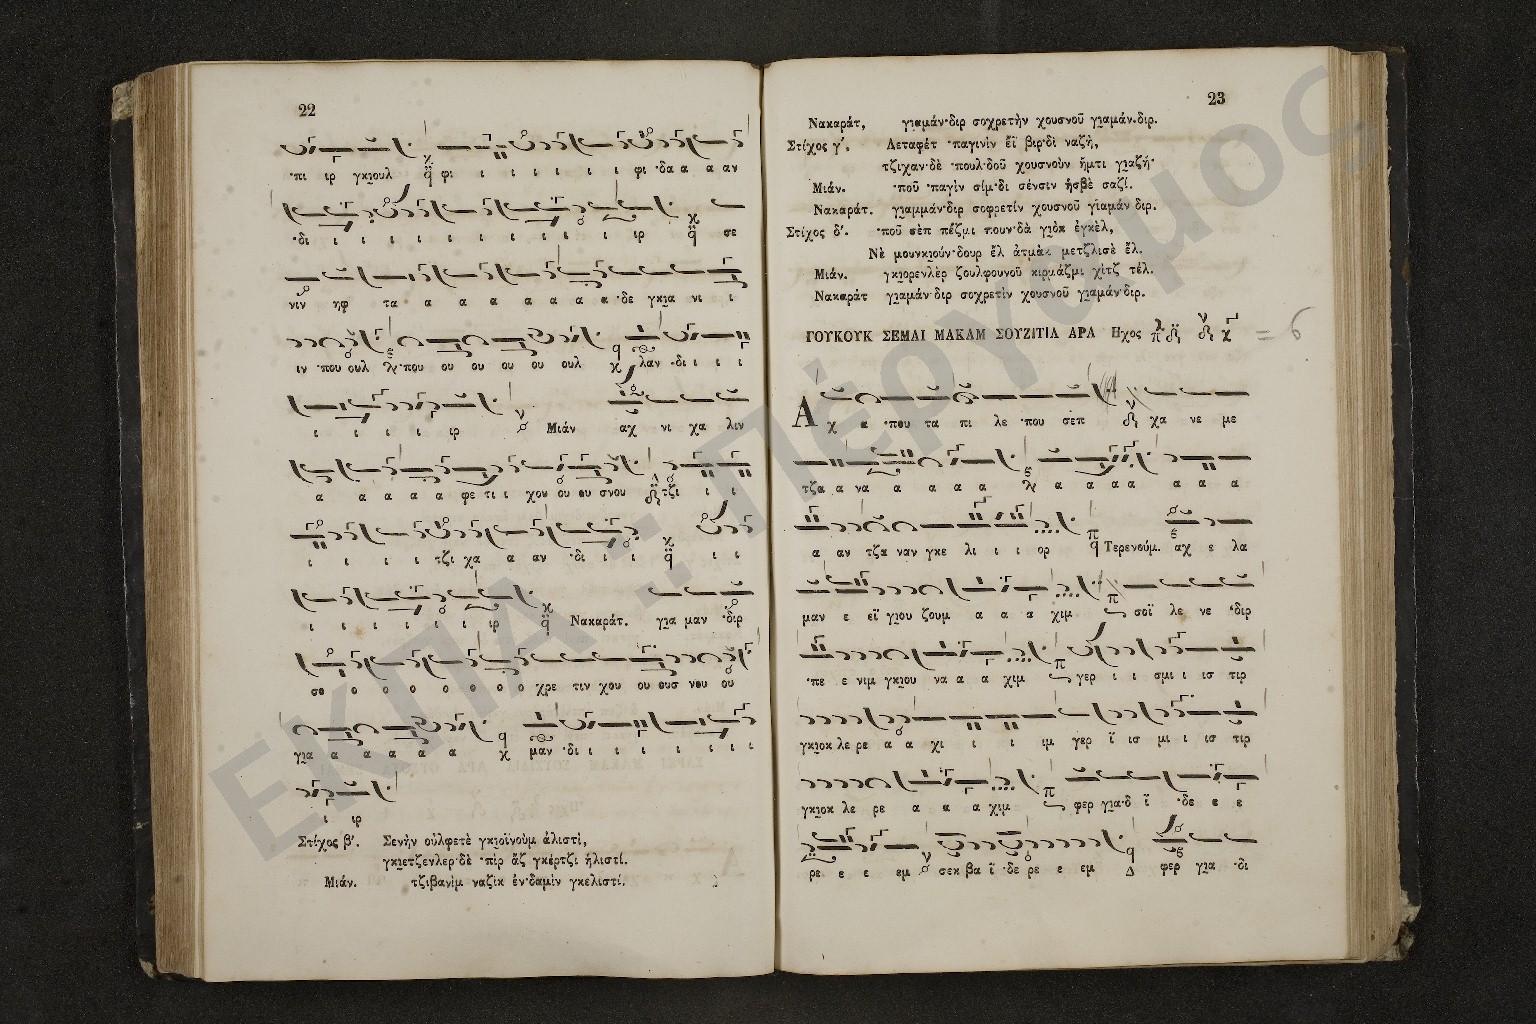 22
·πι ιρ γκιουλ φι ι ι ι ι ι ι φι ·δα α α αν
·δι ι ι ι ι ι ι ι ι ι ι ι ιρ σε
νιν ηφ τα α α α α α α α ·δε γκια νι ι
ιν ·που ουλ ·που ου ου ου ου ουλ χ λαν ·δι ι ι ι
ι ι ι ι ιρ Μιάν αχ νι χα λιν
α α α α α φε τι ι χου ου ου σνου τζι ι ι
ι ι ι ι τζι χα α αν ·δι ι ι ι ι
ι ι ι ι ι ι ιρ Νακαράτ. για μαν ·διρ
σο ο ο ο ο ο ο ο χρε τιν χου ου ουσ νου ου
για α α α α α χ μαν ·δι ι ι ι ι ι ι ι
ι ιρ
Στίχος β'. Σενὴν οὐλφετὲ γκιοϊνοὺμ ἀλιστὶ,
γκιετζενλερ·δὲ ·πὶρ ἂζ γκέρτζι ἠλιστί.
Μιάν. τζιβανὶμ ναζὶκ ἐν·δαμὶν γκελιστί.
23
Νακαράτ, γιαμάν·διρ σοχρετὴν χουσνοῦ γιαμάν·διρ.
Στίχος γ'. Λεταφέτ ·παγινὶν ἔϊ βιρ·δὶ ναζὴ,
τζιχαν·δὲ ·πουλ·δοῦ χουσνοὺν ἤμτι γιαζή·
Μιάν. ·ποῦ ·παγὶν σίμ·δι σένσιν ἠσβὲ σαζί.
Νακαράτ. γιαμμάν·διρ σοφρετὶν χουσνοῦ γιαμάν διρ.
Στίχος δ'. ·ποῦ σὲπ πέζμι πουν·δὰ γιὸκ ἐγκὲλ,
Νὲ μουνκιούν·δουρ ἒλ ἀτμὰκ μετζλισὲ ἔλ.
Μιάν. γκιορενλὲρ ζουλφουνοῦ κιρμάζμι χὶτζ τέλ.
Νακαράτ γιαμάν·διρ σοχρετὶν χουσνοῦ γιαμάν·διρ.
ΓΟΥΚΟΥΚ ΣΕΜΑΙ ΜΑΚΑΜ ΣΟΥΖΙΤΙΛ ΑΡΑ Ηχος = 6
Α χ α ·που τα πι λε ·που σεπ χα νε με
τζα α να α α α α α α α α α α α
α αν τζα ναν γκε λι ι ι ορ Τερενούμ. αχ ε λα
μαν ε εϊ γιου ζουμ α α α χιμ σοϊ λε νε ·διρ
·πε ε νιμ γκιου να α α χιμ γερ ι ι σμι ι ισ τιρ
γκιοκ λε ρε α α χι ι ι ιμ γερ ϊ ισ μι ι ισ τιρ
γκιοκ λε ρε α α α χιμ φερ για·δ ϊ ·δε ε ε
ρε ε ε εμ σεκ βα ϊ ·δε ρε ε εμ Δ φερ για ·δι